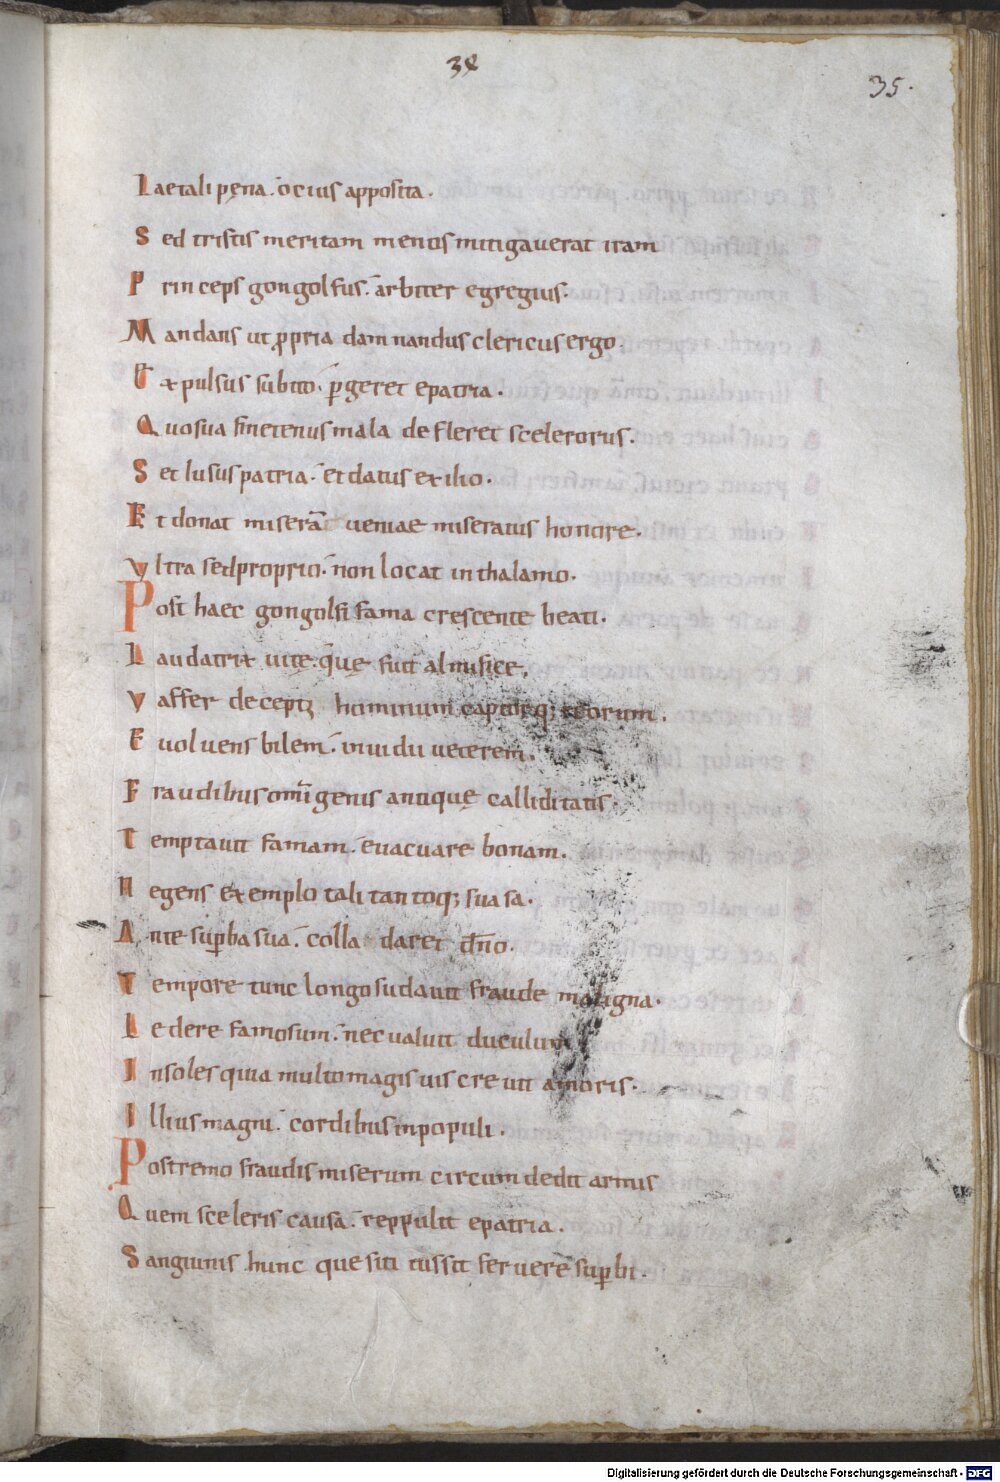 34
35.
Laetali pęna. ocius apposita.
Sed tristis meritam mentis mitigauerat iram
Princeps gongolfus. arbiter egregius.
Mandans ut ꝓpria damnandus clericus ergo.
Expulsus subito. ꝑgeret epatria.
Quo sua finetenus mala defleret scelerorus.
Set lusus patria. et datus exilio.
Et donat miserā ueniae miseratus honore.
Vltra sed proprio. non locat in thalamo.
Post haec gongolfi fama crescente beati.
Laudatrix uitę. quę fuit almificę.
Vaffer decept᷒ hominum captorq; reorum.
Euoluens bilem. inuidii ueterem.
Fraudibus omīgenis antiquę calliditatis.
Temptauit famam. euacuare bonam.
Negens exemplo tali tantoq; suasa.
Ante suꝑba sua. colla daret dn̄o.
Tempore tunc longo sudauit fraude maligna.
Ledere famosum. nec ualuit duculum
Insoles quia multo magis uis creuit amoris.
Illius magni. cordibus in populi.
Postremo fraudis miserum circumdedit armis
Quem sceleris causa. reppulit epatria.
Sanguinis hunc que siti iussit feruere suꝑbi.
Digitalisierung gefördert durch die Deutsche Forschungsgemeinschaft - DFG